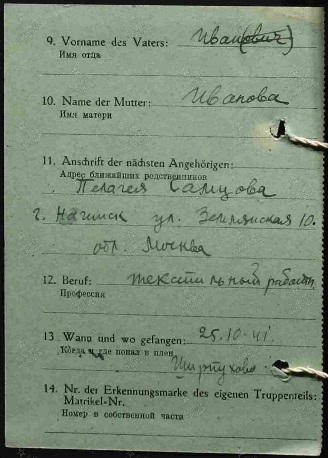 9. Vorname des Vaters: Иван(ович)
Имя отца
10. Name der Mutter: Иванова
Имя матери
11. Anschrift der nächsten Angehörigen:
Адрес ближайших родственников
Пелагея Самцова
г. Нагинск ул. Землянская 10.
обл. Москва
12. Beruf: текстильный работн
Профессия
13 Wann und wo gefangen: 25.10-41
Когда и где попал в плен
14. Nr. der Erkennungsmarke des eigenen Truppenteils:
Matrikel-Nr.
Номер в собственной части